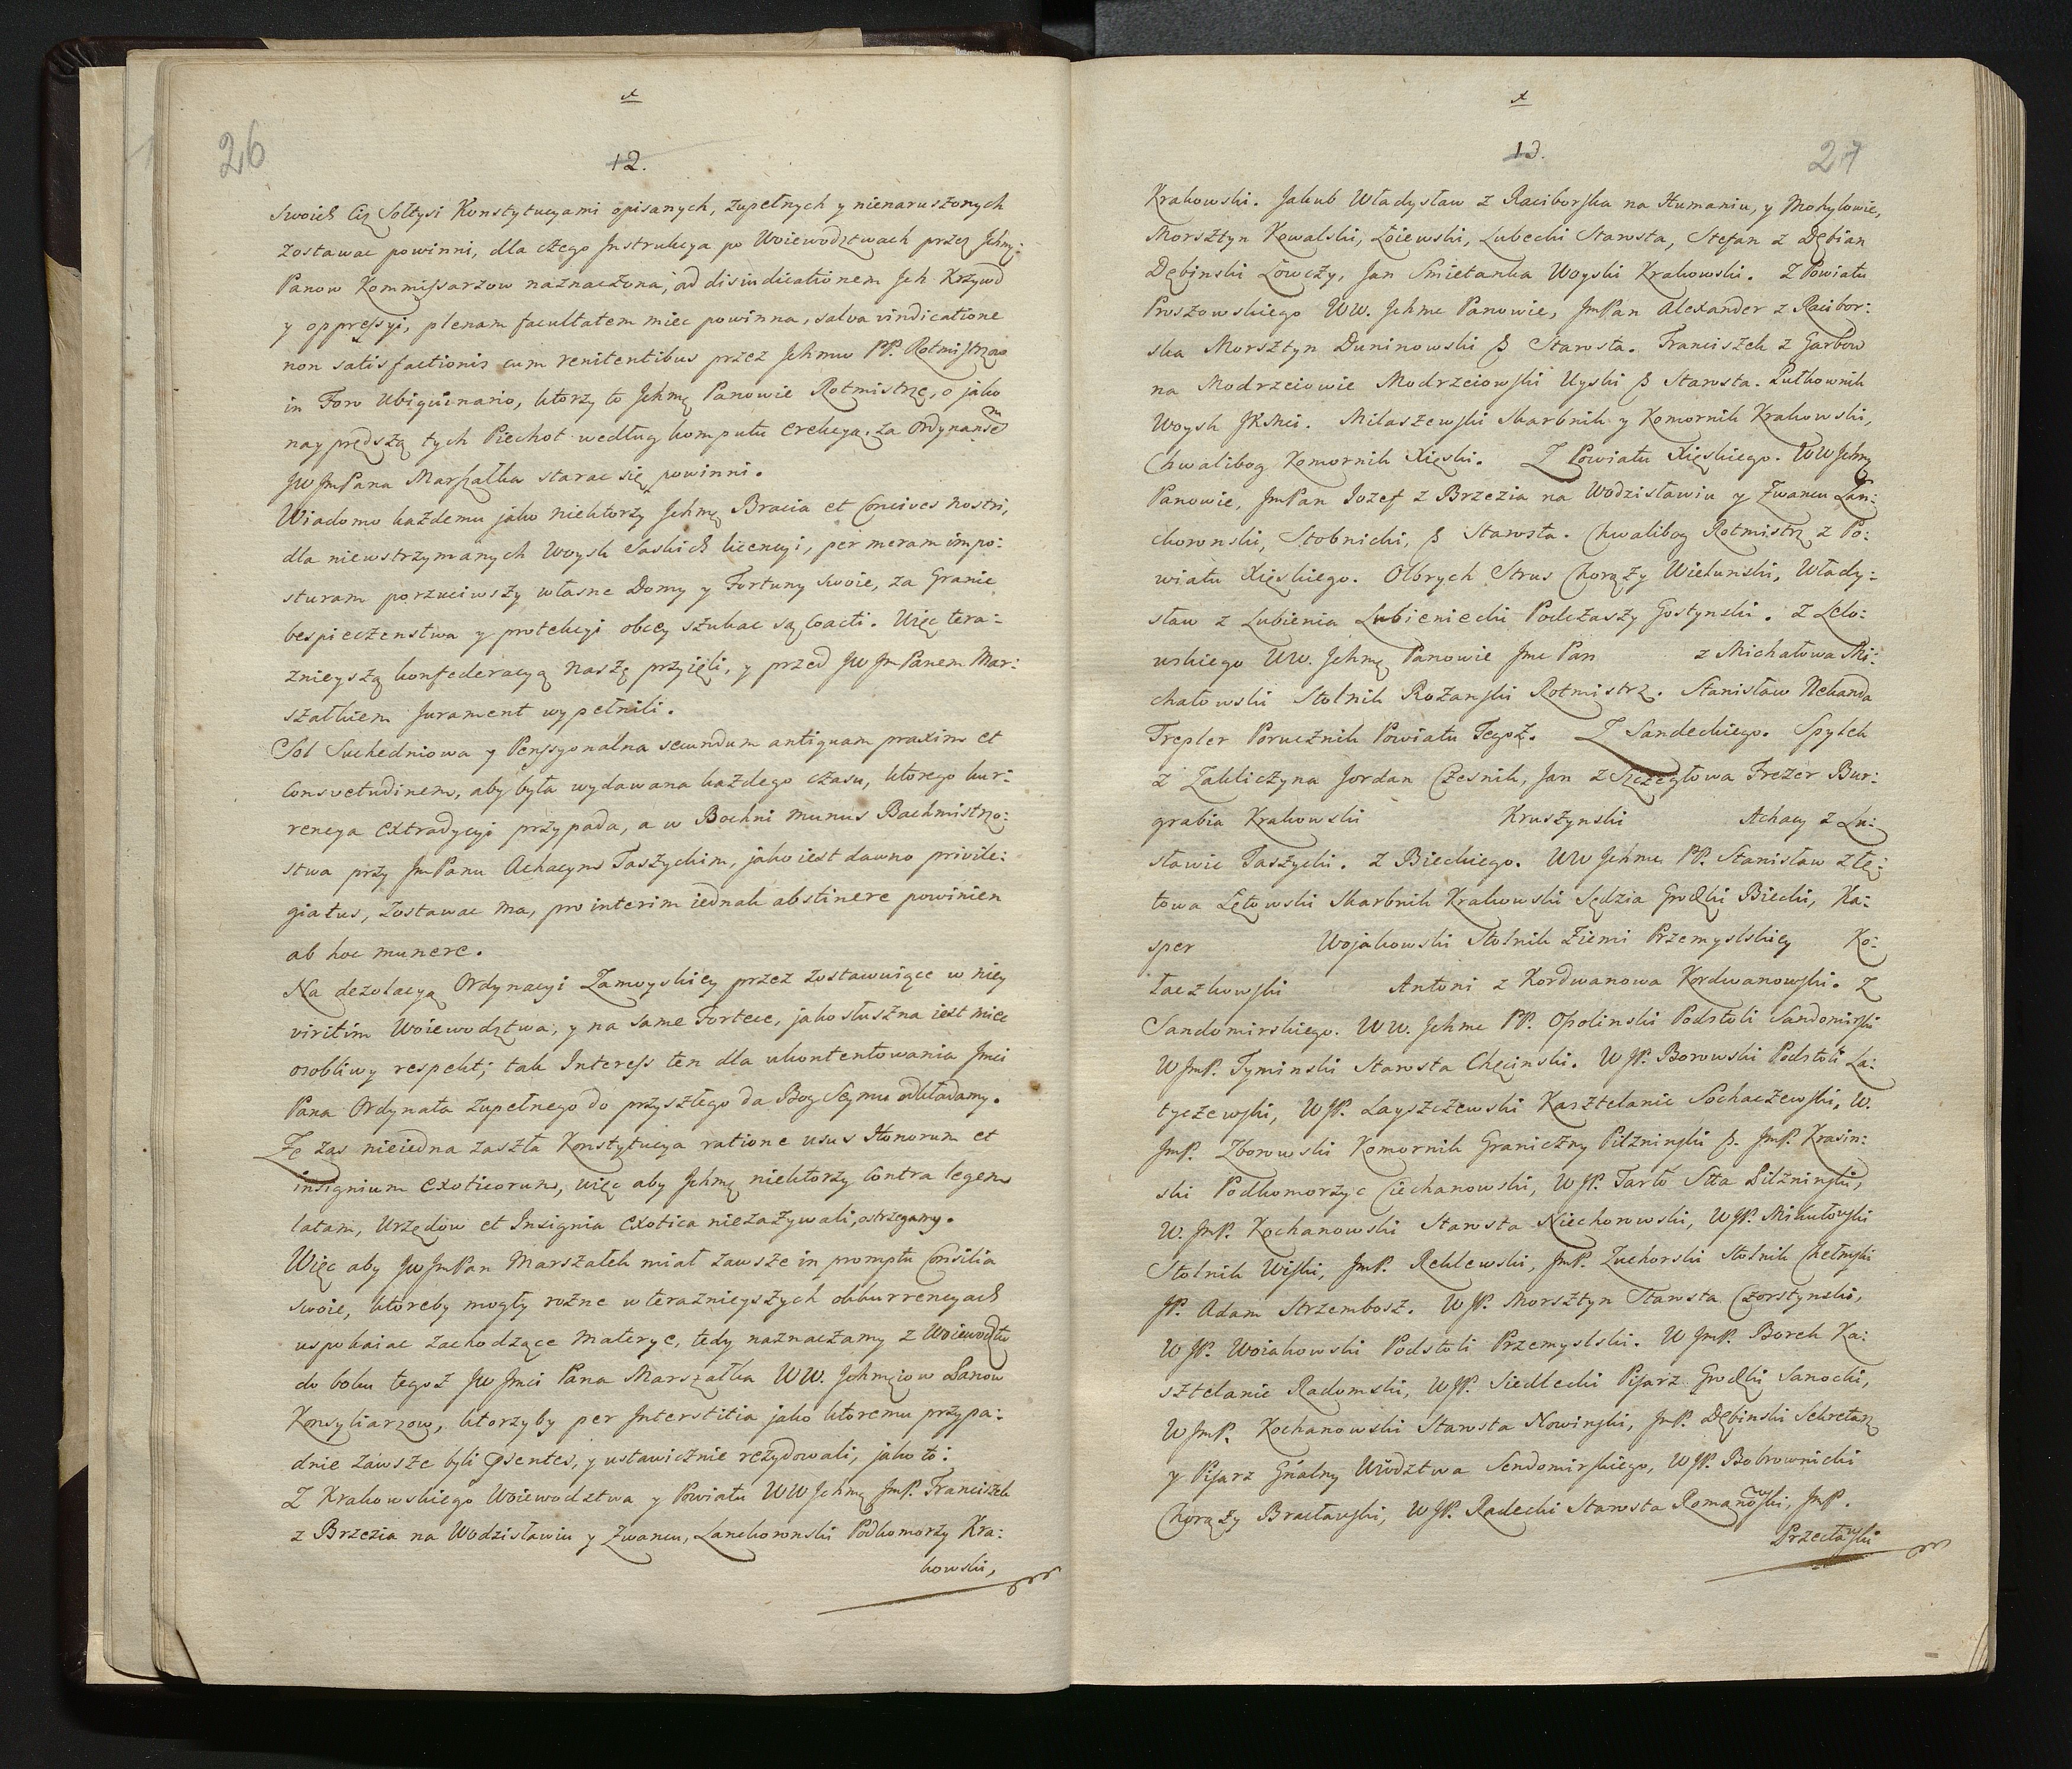 26
12.
swoich ciż Sołtysi Konstytucyami opisanych, zupełnych y nienaruszonych
zostawac powinni, dla czego Instrukcya po Woiewodztwach przez Jchmę:
Panow Kommissarzow naznaczona, ad disiudicationem Jch Krzywd
y oppressyi, plenam facultatem miec powinna, salva vindicatione
non satisfactionis cum renitentibus przez Jchmw PP. Rotmistrzow
in Foro Ubiquinario, ktorzy to Jchmę Panowie Rotmistrze, o jako
nayprędszą tych Piechot według komputu erekcyą. za Ordynansem
JW JmPana Marszałka starac się powinni.
Wiadomo każdemu jako niektorzy Jchmę Bracia et Concives nostri,
dla niewstrzymanych Woysk Saskich licencyi, per meram impo:
sturam porzuciwszy własne Domy y Fortuny swoie, za Granic
bespieczenstwa y protekcyi obcey szukac są coacti. Więc tera:
znieyszą konfederacyą naszę przyięli, y przed JW JmPanem Mar:
szałkiem Jurament wypełnili.
Sol Suchedniowa y Penssyonalna secundum antiquam praxim et
Consvetudinem, aby była wydawana każdego czasu, ktorego kur:
rencya extradycyi przypada, a w Bochni munus Bachmistrzo:
stwa przy JmPanu Achacym Taszyckim, jako iest dawno privile:
giatus, zostawac ma, pro interim iednak abstinere powinien
ab hoc munere.
Na dezolacyą Ordynacyi Zamoyskiey przez zostawuiące w niey
viritim Woiewodztwa, y na same Fortece, jako słuszna iest miec
osobliwy respekt; tak Interess ten dla ukontentowania Jmci
Pana Ordynata zupełnego do przyszłego da Bog Seymu odkładamy.
Że zas nieiedna zaszła Konstytucya ratione usus Honorum et
insignium exoticorum, więc aby Jchmę niektorzy contra legem
latam, Urzędow et Insignia exotica niezażywali, ostrzegamy.
Więc aby JW JmPan Marszałek miał zawsze in promptu Consilia
swoie, ktoreby mogły rożne w teraznieyszych okkurrencyach
uspokaiac zachodzące materye, tedy naznaczamy z Woiewodztw
do boku tegoż JW Jmci Pana Marszałka WW. Jchmęiow Panow
Konsyliarzow, ktorzyby per Interstitia jako ktoremu przypa:
dnie zawsze byli psentes, y ustawicznie rezydowali, jako to:
Z Krakowskiego Woiewodztwa y Powiatu WW Jchmę JmP. Franciszek
z Brzezia na Wodzisławiu y Zwancu, Lanckoronski Podkomorzy Kra:
kowski,
27
13.
Krakowski. Jakub Władysław z Raciborska na Humaniu, y Mohylowie,
Morsztyn Kowalski, Łoiewski, Lubecki Starosta, Stefan z Dębian
Dębinski Łowczy, Jan Smietanka Woyski Krakowski. Z Powiatu
Proszowskiego WW. Jchmc Panowie, JmPan Alexander z Racibor:
ska Morsztyn Duninowski ß Starosta. Franciszek z Garbow
na Modrzeiowie Modrzeiowski Uyski ß Starosta. Pułkownik
Woysk JKMci. Miłaszewski Skarbnik y Komornik Krakowski,
Chwalibog Komornik Xięski. Z Powiatu Xięskiego. WW Jchmę
Panowie, JmPan Jozef z Brzezia na Wodzisławiu y Zwancu Lan:
ckoronski, Stobnicki, ß Starosta. Chwalibog Rotmistrz z Po:
wiatu Xięskiego. Olbrych Strus Chorąży Wieluński, Włady:
sław z Lubienia Lubieniecki Podczaszy Gostynski. Z Lelo:
wskiego WW. Jchmę Panowie Jmc Pan z Michałowa Mi:
chałowski Stolnik Rożanski Rotmistrz. Stanisław Nekanda
Trepler Porucznik Powiatu Tegoż. Z Sandeckiego. Spytek
z Zakliczyna Jordan Czesnik, Jan z Szczegłowa Frezer Bur:
grabia Krakowski Kruszynski Achacy z Lu:
sławic Taszycki. z Bieckiego. WW Jchmc PP. Stanisław z Łę:
towa Łętowski Skarbnik Krakowski Sędzia Grodzki Biecki, Ka:
sper Wojakowski Stolnik Ziemi Przemyslskiey Ko:
łaczkowski Antoni z Kordwanowa Kordwanowski. Z
Sandomirskiego. WW. Jchmc PP. Opolinski Podstoli Sandomirski
W JmP. Tyminski Starosta Chęcinski. W JP. Borowski Podstoli La:
tyczewski, W JP. Łayszczewski Kasztelanic Sochaczewski, W.
JmP. Zborowski Komornik Graniczny Pilzninski ß. JmP. Krasin:
ski Podkomorzyc Ciechanowski, W JP. Tarło Stta Pilzninski,
W. JmP. Kochanowski Starosta Niechorowski, W JP. Mikułowski
Stolnik Wiski, JmP. Reklewski, JmP. Zuchorski Stolnik Chełmski
JP. Adam Strzembosz. W JP. Morsztyn Starosta Czorstynski,
W JP. Woiakowski Podstoli Przemyslski. W JmP. Borek Ka:
sztelanic Radomski, W JP. Siedlecki Pisarz Grodzki Sanocki,
W JmP. Kochanowski Starosta Nowinski, JmP. Dębinski Sekretarz
y Pisarz Gnalny Wwdztwa Sendomirskiego, W JP. Bobrownicki
Chorąży Bracławski, W JP. Radecki Starosta Romanowski, JmP.
Przecławski